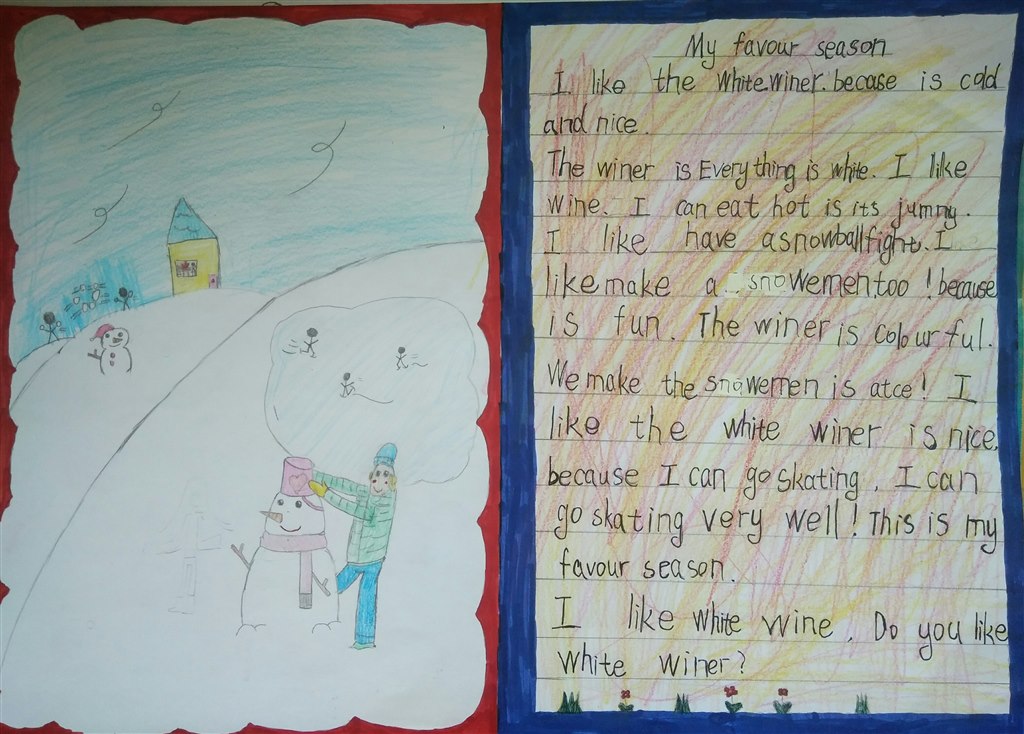 My favour season
I like the white winer. becase is cold
and nice.
The winer is Everything is white. I like
wine. I can eat hot is its jummy.
I like have a snowball fight. I
like make a snowemen too! because
is fun. The winer is colourful.
We make the snowemen is atce! I
like the white winer is nice,
because I can go skating. I can
go skating very well! This is my
favour season.
I like white wine. Do you like
white winer?